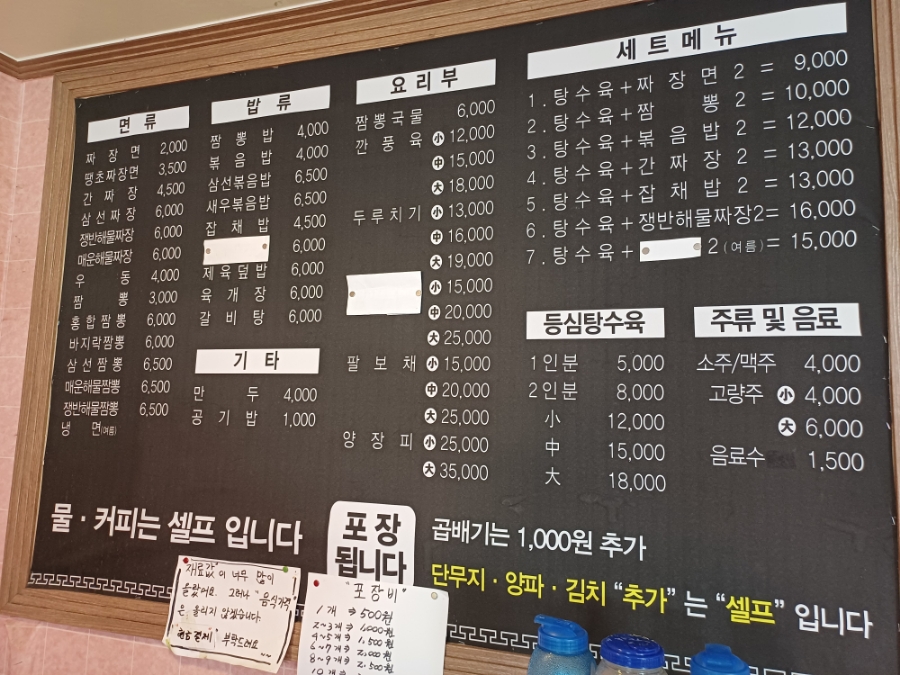 면 류
짜 장 면 2,000
땡초짜장면 3,500
간 짜 장 4,500
삼 선 짜 장 6,000
쟁반해물짜장 6,000
매운해물짜장 6,000
우 동 4,000
짬 뽕 3,000
홍 합 짬 뽕 6,000
바지락짬뽕 6,000
삼 선 짬 뽕 6,500
매운해물짬뽕 6,500
쟁반해물짬뽕 6,500
냉 면(여름)
밥 류
짬 뽕 밥 4,000
볶 음 밥 4,000
삼선볶음밥 6,500
새우볶음밥 6,500
잡 채 밥 4,500
6,000
제 육 덮 밥 6,000
육 개 장 6,000
갈 비 탕 6,000
기 타
만 두 4,000
공 기 밥 1,000
요 리 부
짬 뽕 국 물 6,000
깐 풍 육 小 12,000
中 15,000
大 18,000
두 루 치 기 小 13,000
中 16,000
大 19,000
小 15,000
中 20,000
大 25,000
팔 보 채 小 15,000
中 20,000
大 25,000
양 장 피 小 25,000
大 35,000
세 트 메 뉴
1. 탕 수 육 + 짜 장 면 2 = 9,000
2. 탕 수 육 + 짬 뽕 2 = 10,000
3. 탕 수 육 + 볶 음 밥 2 = 12,000
4. 탕 수 육 + 간 짜 장 2 = 13,000
5. 탕 수 육 + 잡 채 밥 2 = 13,000
6. 탕 수 육 + 쟁반해물짜장2= 16,000
7. 탕 수 육 + 2 (여름) = 15,000
등심탕수육
1인분 5,000
2인분 8,000
小 12,000
中 15,000
大 18,000
주류 및 음료
소주/맥주 4,000
고량주 小 4,000
大 6,000
음료수 1,500
물 · 커피는 셀프 입니다
포 장
됩니다
곱배기는 1,000원 추가
단무지 · 양파 · 김치 “추가” 는 “셀프” 입니다
"재료값"이 너무 많이
올랐어요. 그러나 "음식가격"
은 올리지 않겠습니다.
부탁드려요
"포장비"
1개 ⇒ 500원
2~3개 ⇒ 1,000원
4~5개 ⇒ 1,500원
6~7개 ⇒ 2,000원
8~9개 ⇒ 2,500원